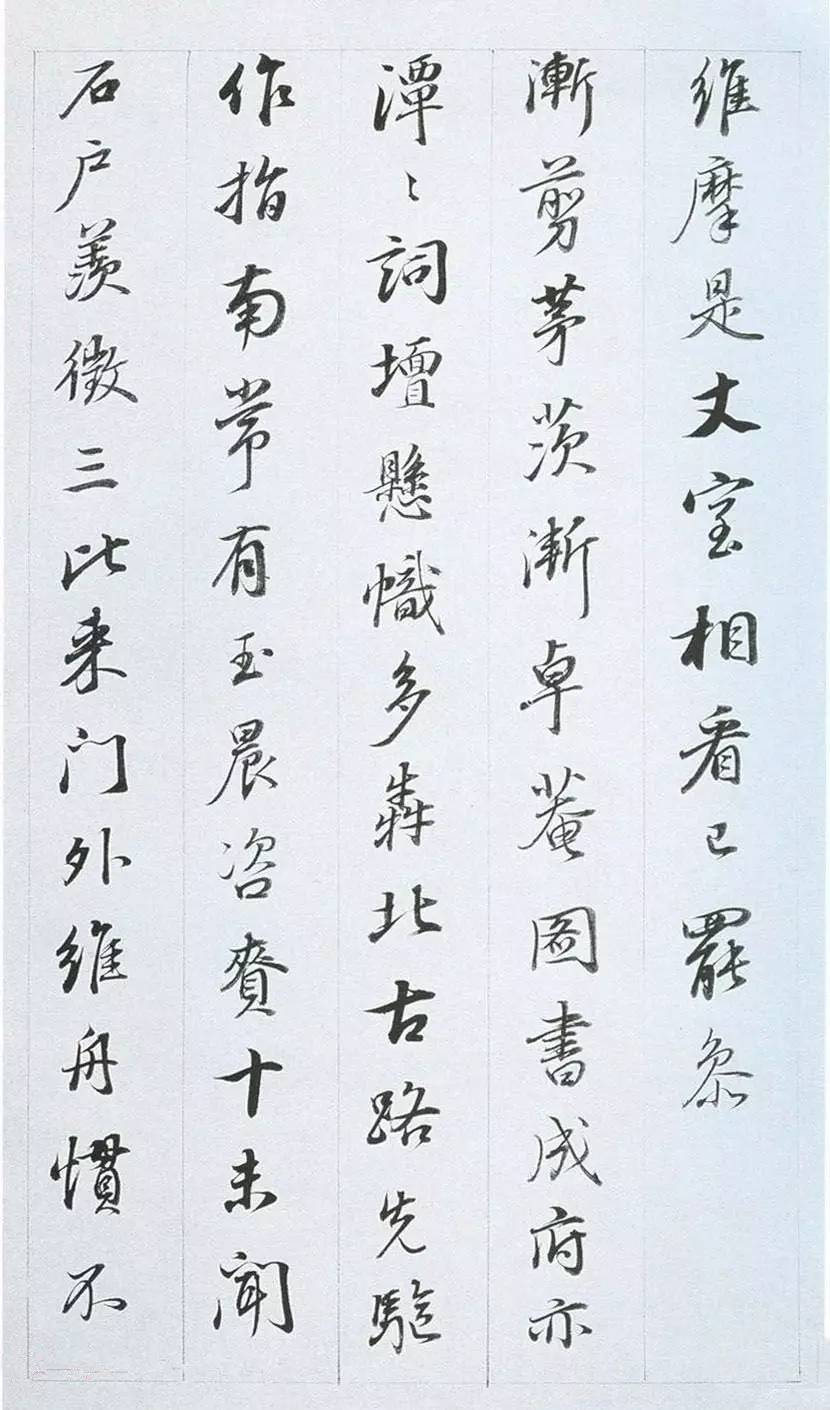 維摩是丈室相看已罷叅
漸剪茅茨漸卓菴圖書成府亦
潭〻詞壇懸幟多犇北古路先駈
作指南常有玉晨咨賚十未聞
石户羨徵三比来门外維舟慣不